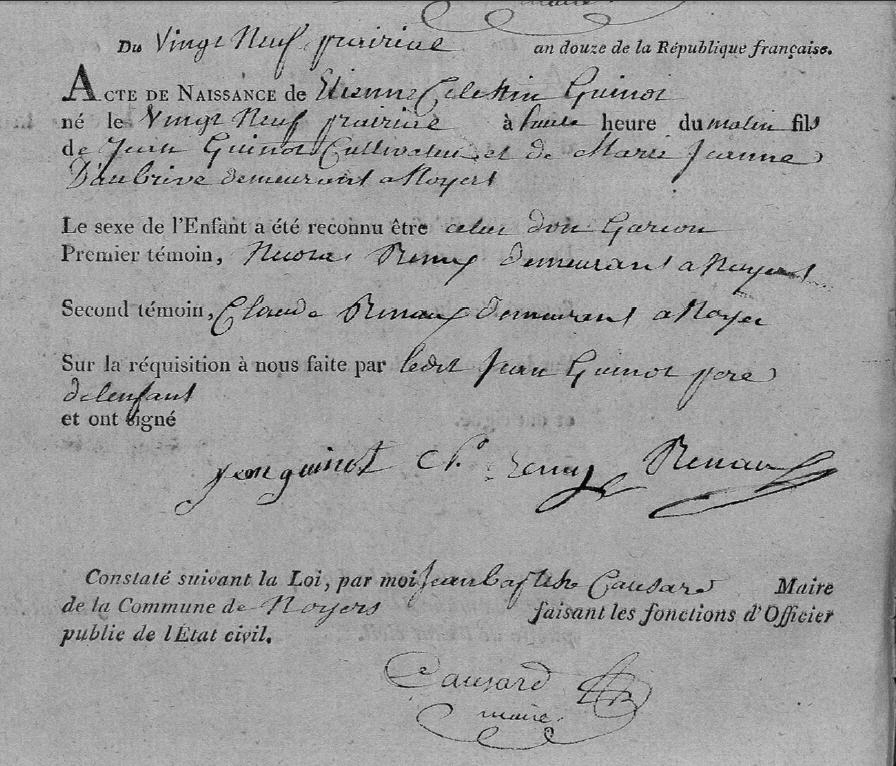 maire
Du Vingt Neuf prairial an douze de la République française.
ACTE DE NAISSANCE de Etienne Celestin Guinot
né le Vingt Neuf prairial à heure du matin fils
de Jean Guinot Cultivateur et de Marie Jeanne
D'aubrive demeurant a Noyers
Le sexe de l'Enfant a été reconnu être celui d'on Garcon
Premier témoin, Nicolas Remy demeurant a Noyers
Second témoin, Claude Renaux demeurant a Noyer
Sur la réquisition à nous faite par ledit Jean Guinot pere
de lenfant
et ont signé
Jean guinot Remy Renaux
Constaté suivant la Loi, par moi Jean baptiste Causard Maire
de la Commune de Noyers faisant les fonctions d'Officier
public de l'État civil.
Causard
maire